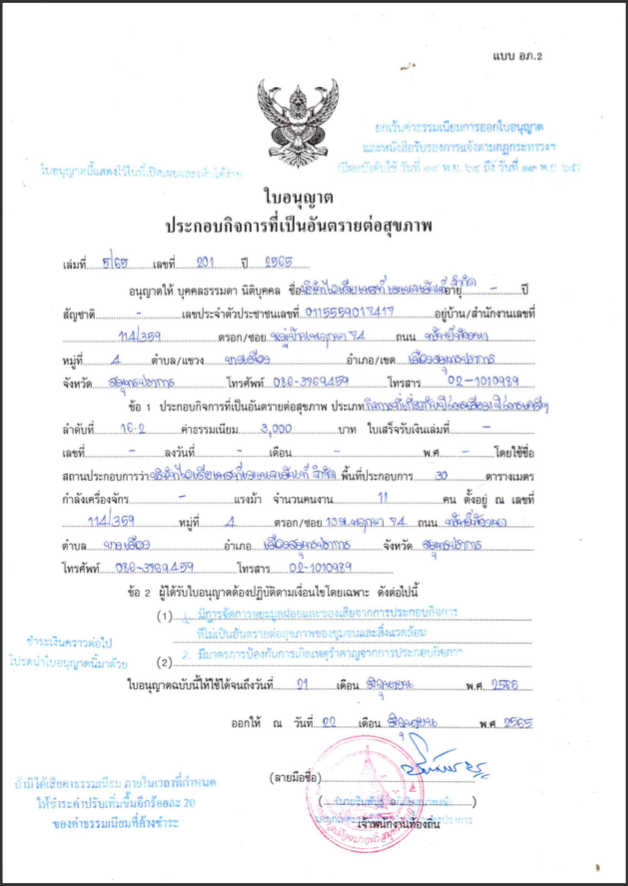 แบบ อภ.2
ยกเว้นค่าธรรมเนียมการออกใบอนุญาต
และหนังสือรับรองการแจ้งตามกฎกระทรวงฯ
(มีผลบังคับใช้ วันที่ ถึง วันที่
ใบอนุญาตนี้แสดงไว้ในที่เปิดเผยและเห็นได้ง่าย
ใบอนุญาต
ประกอบกิจการที่เป็นอันตรายต่อสุขภาพ
เล่มที่ 5/65 เลขที่ 201 ปี 2565
อนุญาตให้ บุคคลธรรมดา นิติบุคคล ชื่อ บริษัท จำกัด อายุ - ปี
สัญชาติ - เลขประจำตัวประชาชนเลขที่ 0115559017417 อยู่บ้าน/สำนักงานเลขที่
114/359 ตรอก/ซอย ถนน
หมู่ที่ 4 ตำบล/แขวง บางเมือง อำเภอ/เขต เมืองสมุทรปราการ
จังหวัด สมุทรปราการ โทรศัพท์ 086-3769459 โทรสาร 02-1010989
ข้อ 1 ประกอบกิจการที่เป็นอันตรายต่อสุขภาพ ประเภท
ลำดับที่ 16.2 ค่าธรรมเนียม 3,000 บาท ใบเสร็จรับเงินเล่มที่ -
เลขที่ - ลงวันที่ - เดือน - พ.ศ. - โดยใช้ชื่อ
สถานประกอบการว่า บริษัท จำกัด พื้นที่ประกอบการ 30 ตารางเมตร
กำลังเครื่องจักร - แรงม้า จำนวนคนงาน 11 คน ตั้งอยู่ ณ เลขที่
114/359 หมู่ที่ 4 ตรอก/ซอย ถนน
ตำบล บางเมือง อำเภอ เมืองสมุทรปราการ จังหวัด สมุทรปราการ
โทรศัพท์ 086-3769459 โทรสาร 02-1010989
ข้อ 2 ผู้ได้รับใบอนุญาตต้องปฏิบัติตามเงื่อนไขโดยเฉพาะ ดังต่อไปนี้
(1) 1. มีการจัดการขยะมูลฝอยและของเสียจากการประกอบกิจการ
ที่ไม่เป็นอันตรายต่อสุขภาพของชุมชนและสิ่งแวดล้อม
(2) 2. มีมาตรการป้องกันการเกิดเหตุรำคาญจากการประกอบกิจการ
ชำระเงินคราวต่อไป
โปรดนำใบอนุญาตนี้มาด้วย
ใบอนุญาตฉบับนี้ให้ใช้ได้จนถึงวันที่ 21 เดือน มิถุนายน พ.ศ. 2566
ออกให้ ณ วันที่ 22 เดือน มิถุนายน พ.ศ. 2565
(ลายมือชื่อ)
เจ้าพนักงานท้องถิ่น
ถ้ามิได้เสียค่าธรรมเนียม ภายในเวลาที่กำหนด
ให้ชำระค่าปรับเพิ่มขึ้นอีกร้อยละ 20
ของค่าธรรมเนียมที่ค้างชำระ